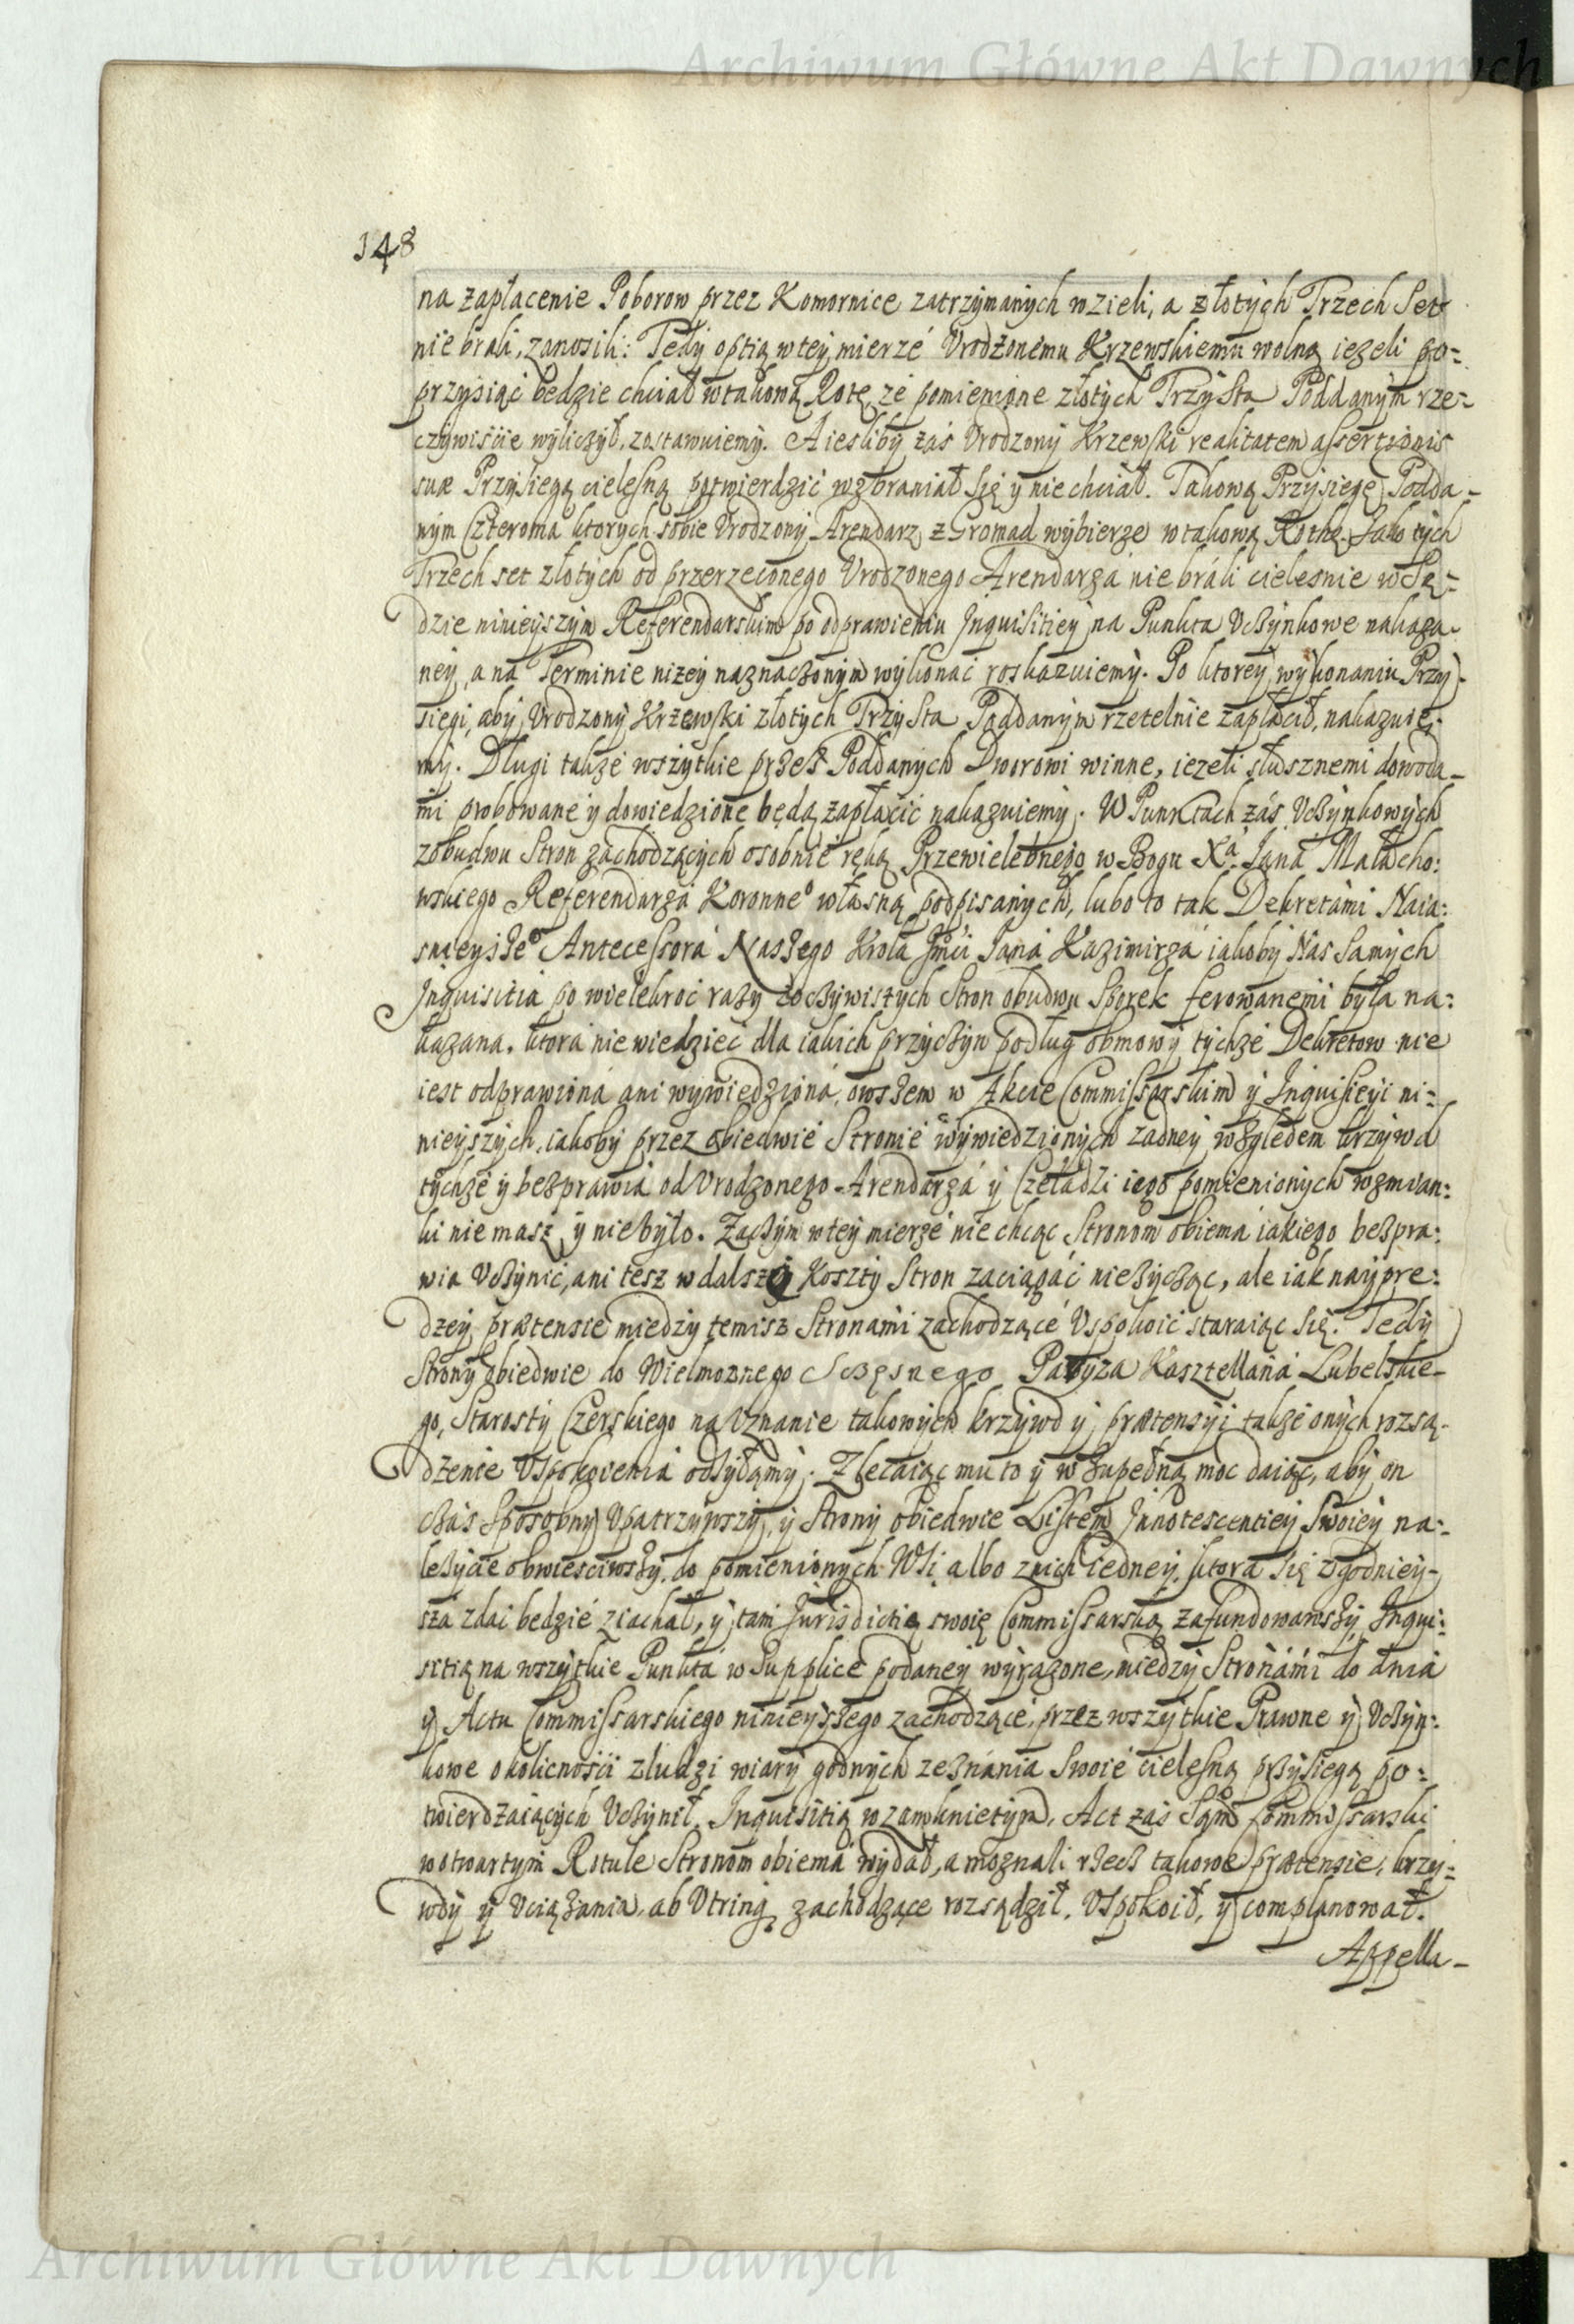 Archiwum Główne Akt Dawnych
148
na zapłacenie Poborow przez Komornice zatrzymanych wzieli, a złotych Trzech Set
nie brali, zanosili: Tedy optią w tey mierze Vrodzonemu Krzewskiemu wolną iezeli po=
przysiąć bedzie chciał w takową Rotę, ze pomienione złotych Trzysta Poddanym rze=
czywiscie wyliczył, zostawuiemy. A iesliby zas Vrodzony Krzewski realitatem assertionis
suæ Przysięgą cielesną potwierdzić wzbraniał się y nie chciał. Takową Przysięgę Podda-
nym Czteroma ktorych sobie Vrodzony Arendarz z Gromad wybierze w takową Rothę. Jako tych
Trzech set złotych od przerzeczonego Vrodzonego Arendarza nie brali cielesnie w Są=
dzie ninieyszym Referendarskim po odprawieniu Inquisitiey na Punkta Vczynkowe nakaza-
ney, a na Terminie nizey naznaczonym wykonać roskazuiemy. Po ktorey wykonaniu Przy-
siegi, aby Vrodzony Krzewski złotych Trzysta Poddanym rzetelnie zapłacił, nakazuie-
my. Długi takze wszytkie przez Poddanych Dworowi winne, iezeli słusznemi dowoda-
mi probowane y dowiedzione będą zapłacić nakazuiemy. W Punktach zas Vczynkowych
z obudwu Stron zachodzących osobnie ręką Przewielebnego w Bogu Xa Jana Małacho:
wskiego Referendarza Koronneo własną podpisanych, lubo to tak Dekretami Naia:
snieyszeo Antecessora Naszego Krola Jmći Jana Kazimirza iakoby Nas Samych
Inquisitia po wielekroc razy z oczywistych Stron obudwu Sporek ferowanemi była na:
kazana, ktora nie wiedzieć dla iakich przyczyn podług obmowy tychze Dekretow nie
iest odprawiona ani wywiedziona, owszem w Akcie Commissarskim y Inquisityi ni=
nieyszych, iakoby przez obiedwie Stronie wywiedzionych zadney względem krzywd
tychze y bezprawia od Vrodzonego Arendarza y Czeladzi iego pomienionych wzmian:
ki nie masz y nie było. Zaczym w tey mierze nie chcąc Stronom obiema iakiego bezpra:
wia Vczynić, ani tesz w dalszy Koszty Stron zaciągać nieżycząc, ale iak nayprę:
dzey prætensie miedzy temisz Stronami zachodzące Vspokoić staraiąc się. Tedy
Strony obiedwie do Wielmoznego Sczęsnego Paryza Kasztellana Lubelskie-
go, Starosty Czerskiego na Vznanie takowych krzywd y prætensyi takze onych rozsą-
dzenie Vspokoienia odsyłamy. Zlecaiąc mu to y w zupełną moc daiąc, aby on
czas sposobny Vpatrzywszy, y Strony obiedwie Listem Innotescentiey Swoiey na:
leżycie obwiesciwszy, do pomienionych Wsi, albo z nich iedney, ktora się zgodniey-
sza zdać bedzie ziachał, y tam Jurisdictią swoię Commissarską zafundowawszy Inqui:
sitią na wszytkie Punkta w Supplice podaney wyrazone, miedzy Stronami do dnia
y Actu Commissarskiego ninieyszego zachodzące, przez wszytkie Prawne y Vczyn:
kowe okolicnosci z ludzi wiary godnych zeznania Swoie cielesną przysięgą po:
twierdzaiących Vczynił. Inquisitią w zamknietym, Act zas Sąm Commissarski
w otwartym Rotule Stronom obiema wydał, a moznali rzecz takowe prætensie, krzy:
wdy y Vciążania, ab Vtrinq zachodzące rozsądził, Vspokoił, y complanował.
Appella-
Archiwum Główne Akt Dawnych